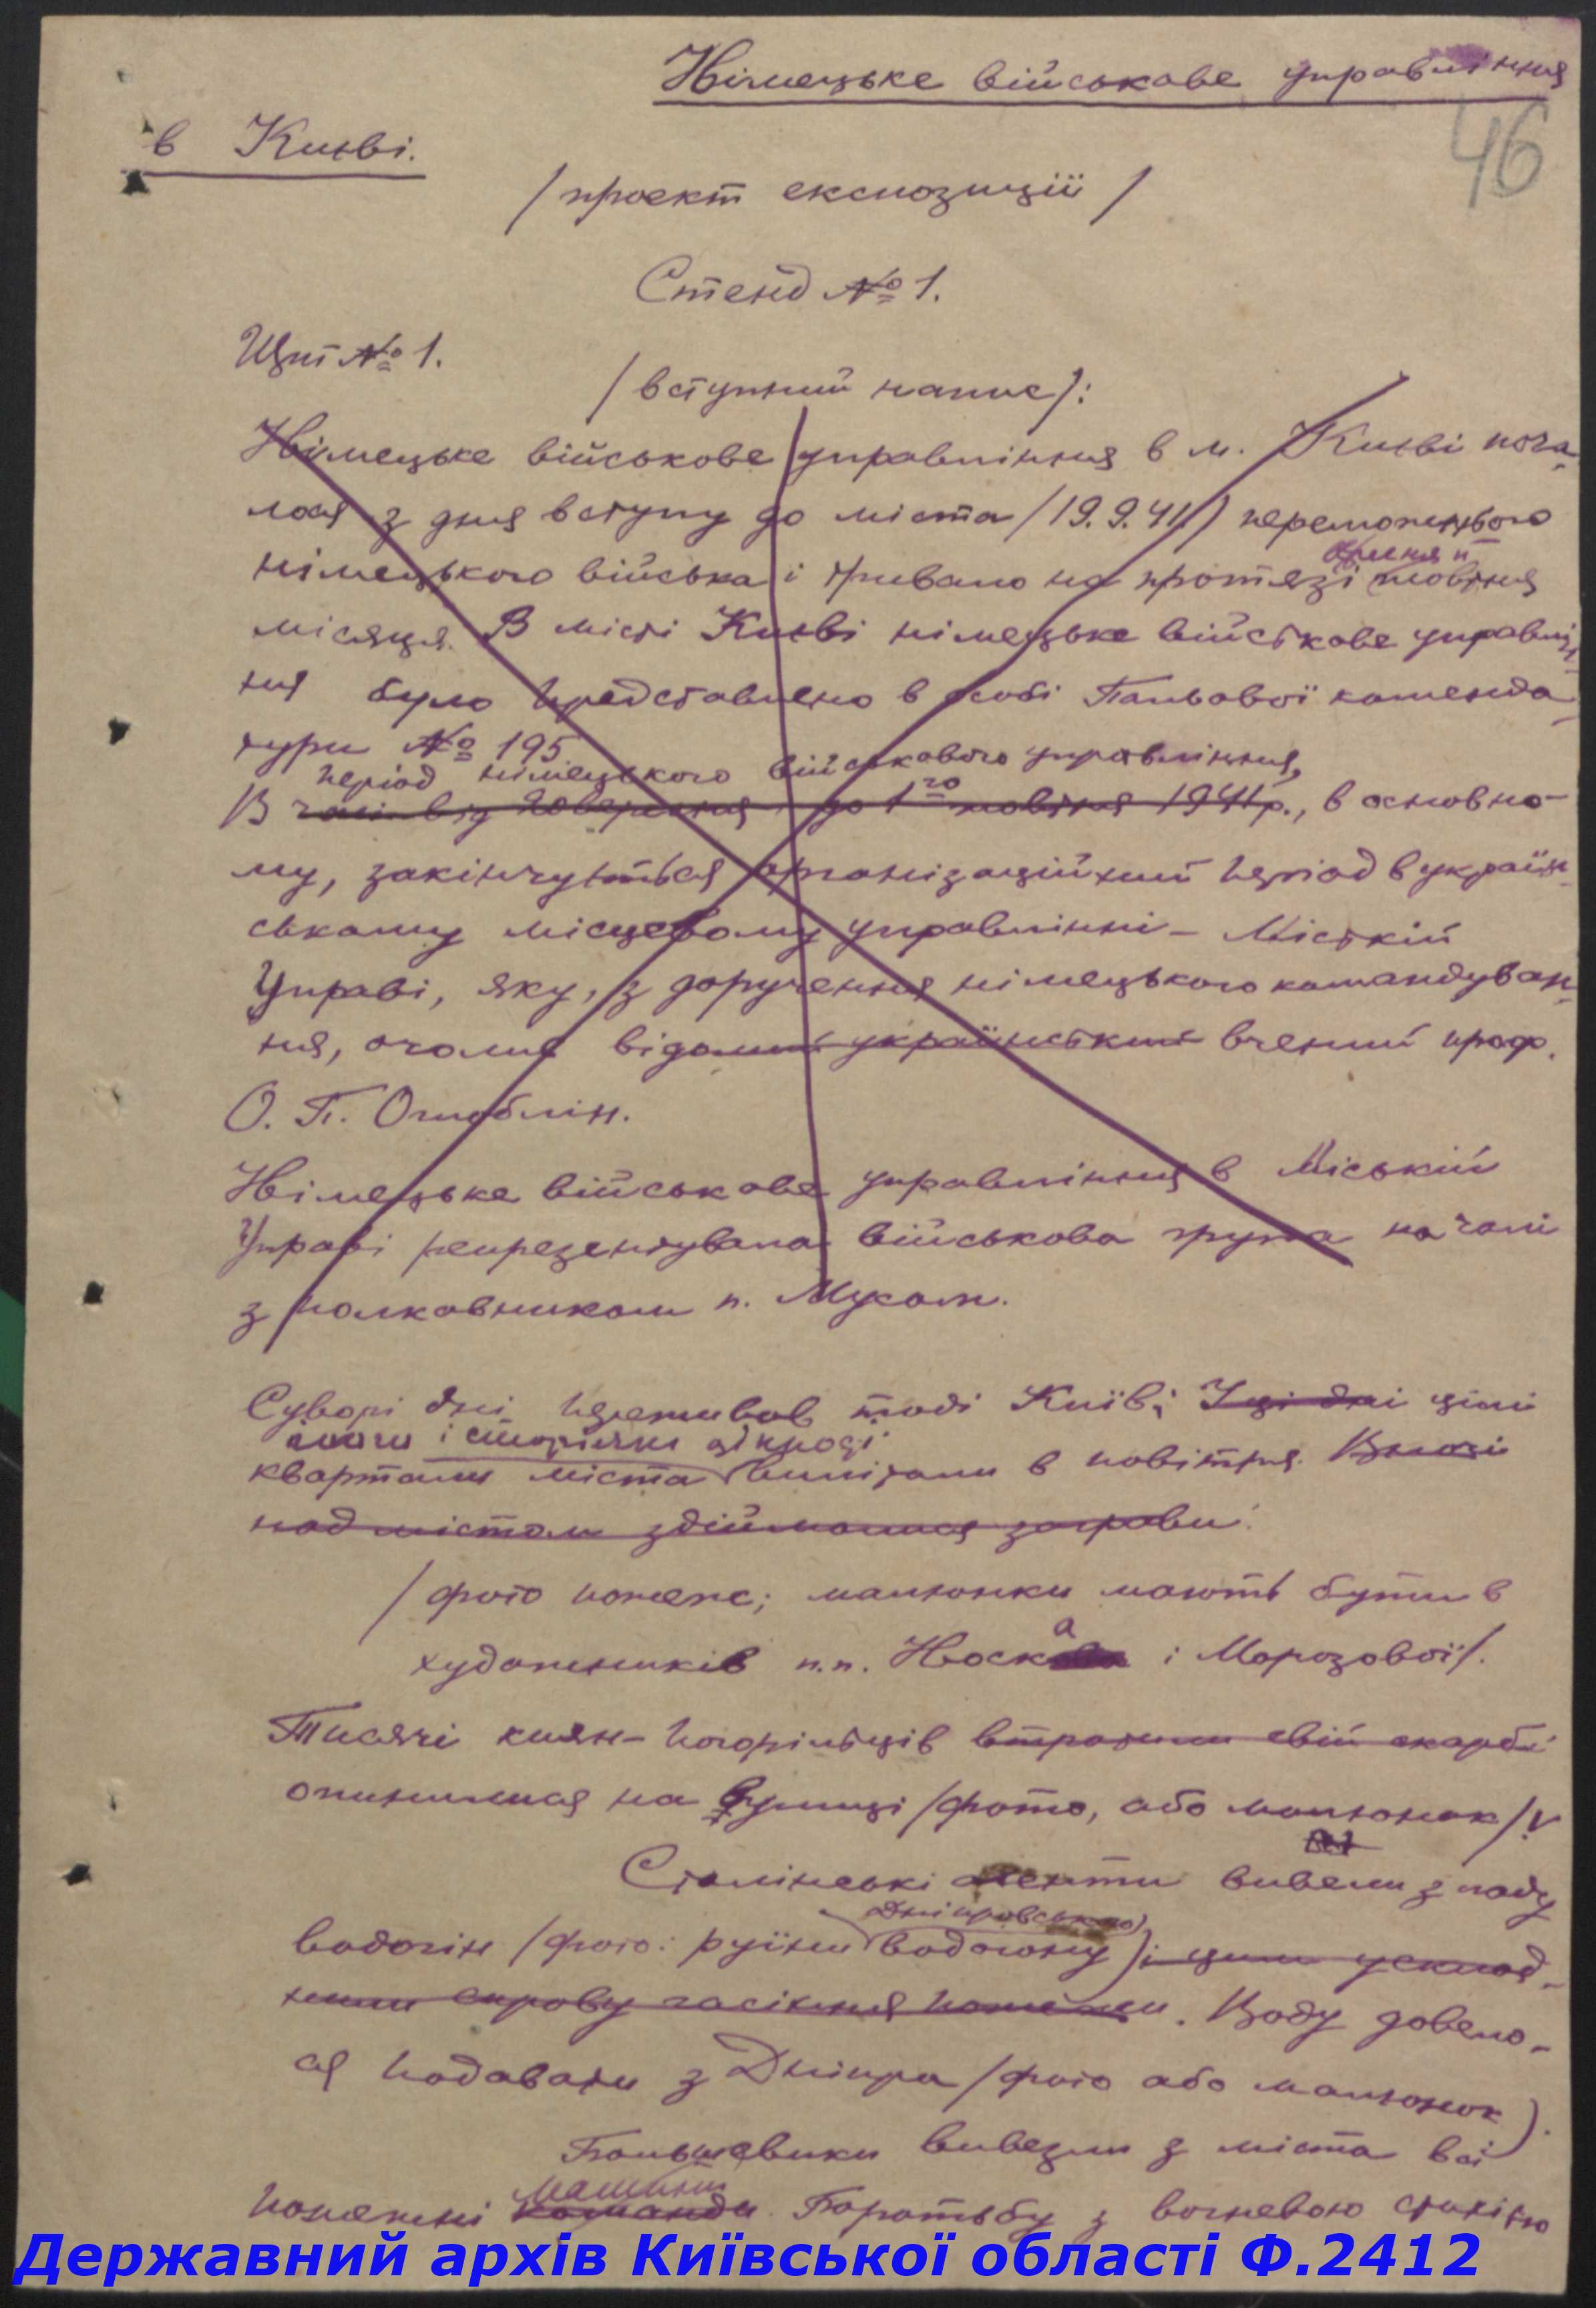 Німецьке військове управління
46
в Києві.
/проект експозиції/
Стенд № 1.
Щит № 1.
/вступний напис/:
Німецьке військове управління в м. Києві поча-
лося з дня вступу до міста /19.9.41/ переможнього
німецького війська і тривало на протязі жовтня
місяця. В місті Києві німецьке військове управлін-
ня було представлено в особі Польової коменда-
тури № 195
період німецького військового управління,
В часі від повернення до 1го жовтня 1941 р., в основно-
му, закінчується організаційний період в україн-
ському місцевому управлінні – Міській
Управі, яку, з доручення німецького командуван-
ня, очолив відомий український вчений проф.
О. П. Оглоблін.
Німецьке військове управління в Міській
Управі репрезентувала військова група на чолі
з полковником п. Мусом.
Суворі дні переживав тоді Київ; цілі
квартали міста вилітали в повітря. Вночі
над містом здіймалися заграви.
/фото пожеж; малюнки мають бути в
художників п.п. Носка і Морозової/.
Тисячі киян-погорільців втратили свій скарб і
опинилися на вулиці /фото, або малюнок/!
Сталінські агенти вивели з ладу
Дніпровського
водогін /фото: руїни водогону/ і цим усклад-
нили справу гасіння пожежи. Воду довело-
ся подавати з Дніпра /фото або малюнок/.
Большевики вивезли з міста всі
машини
пожежні команди. Боротьбу з вогневою стихією
Державний архів Київської області Ф.2412